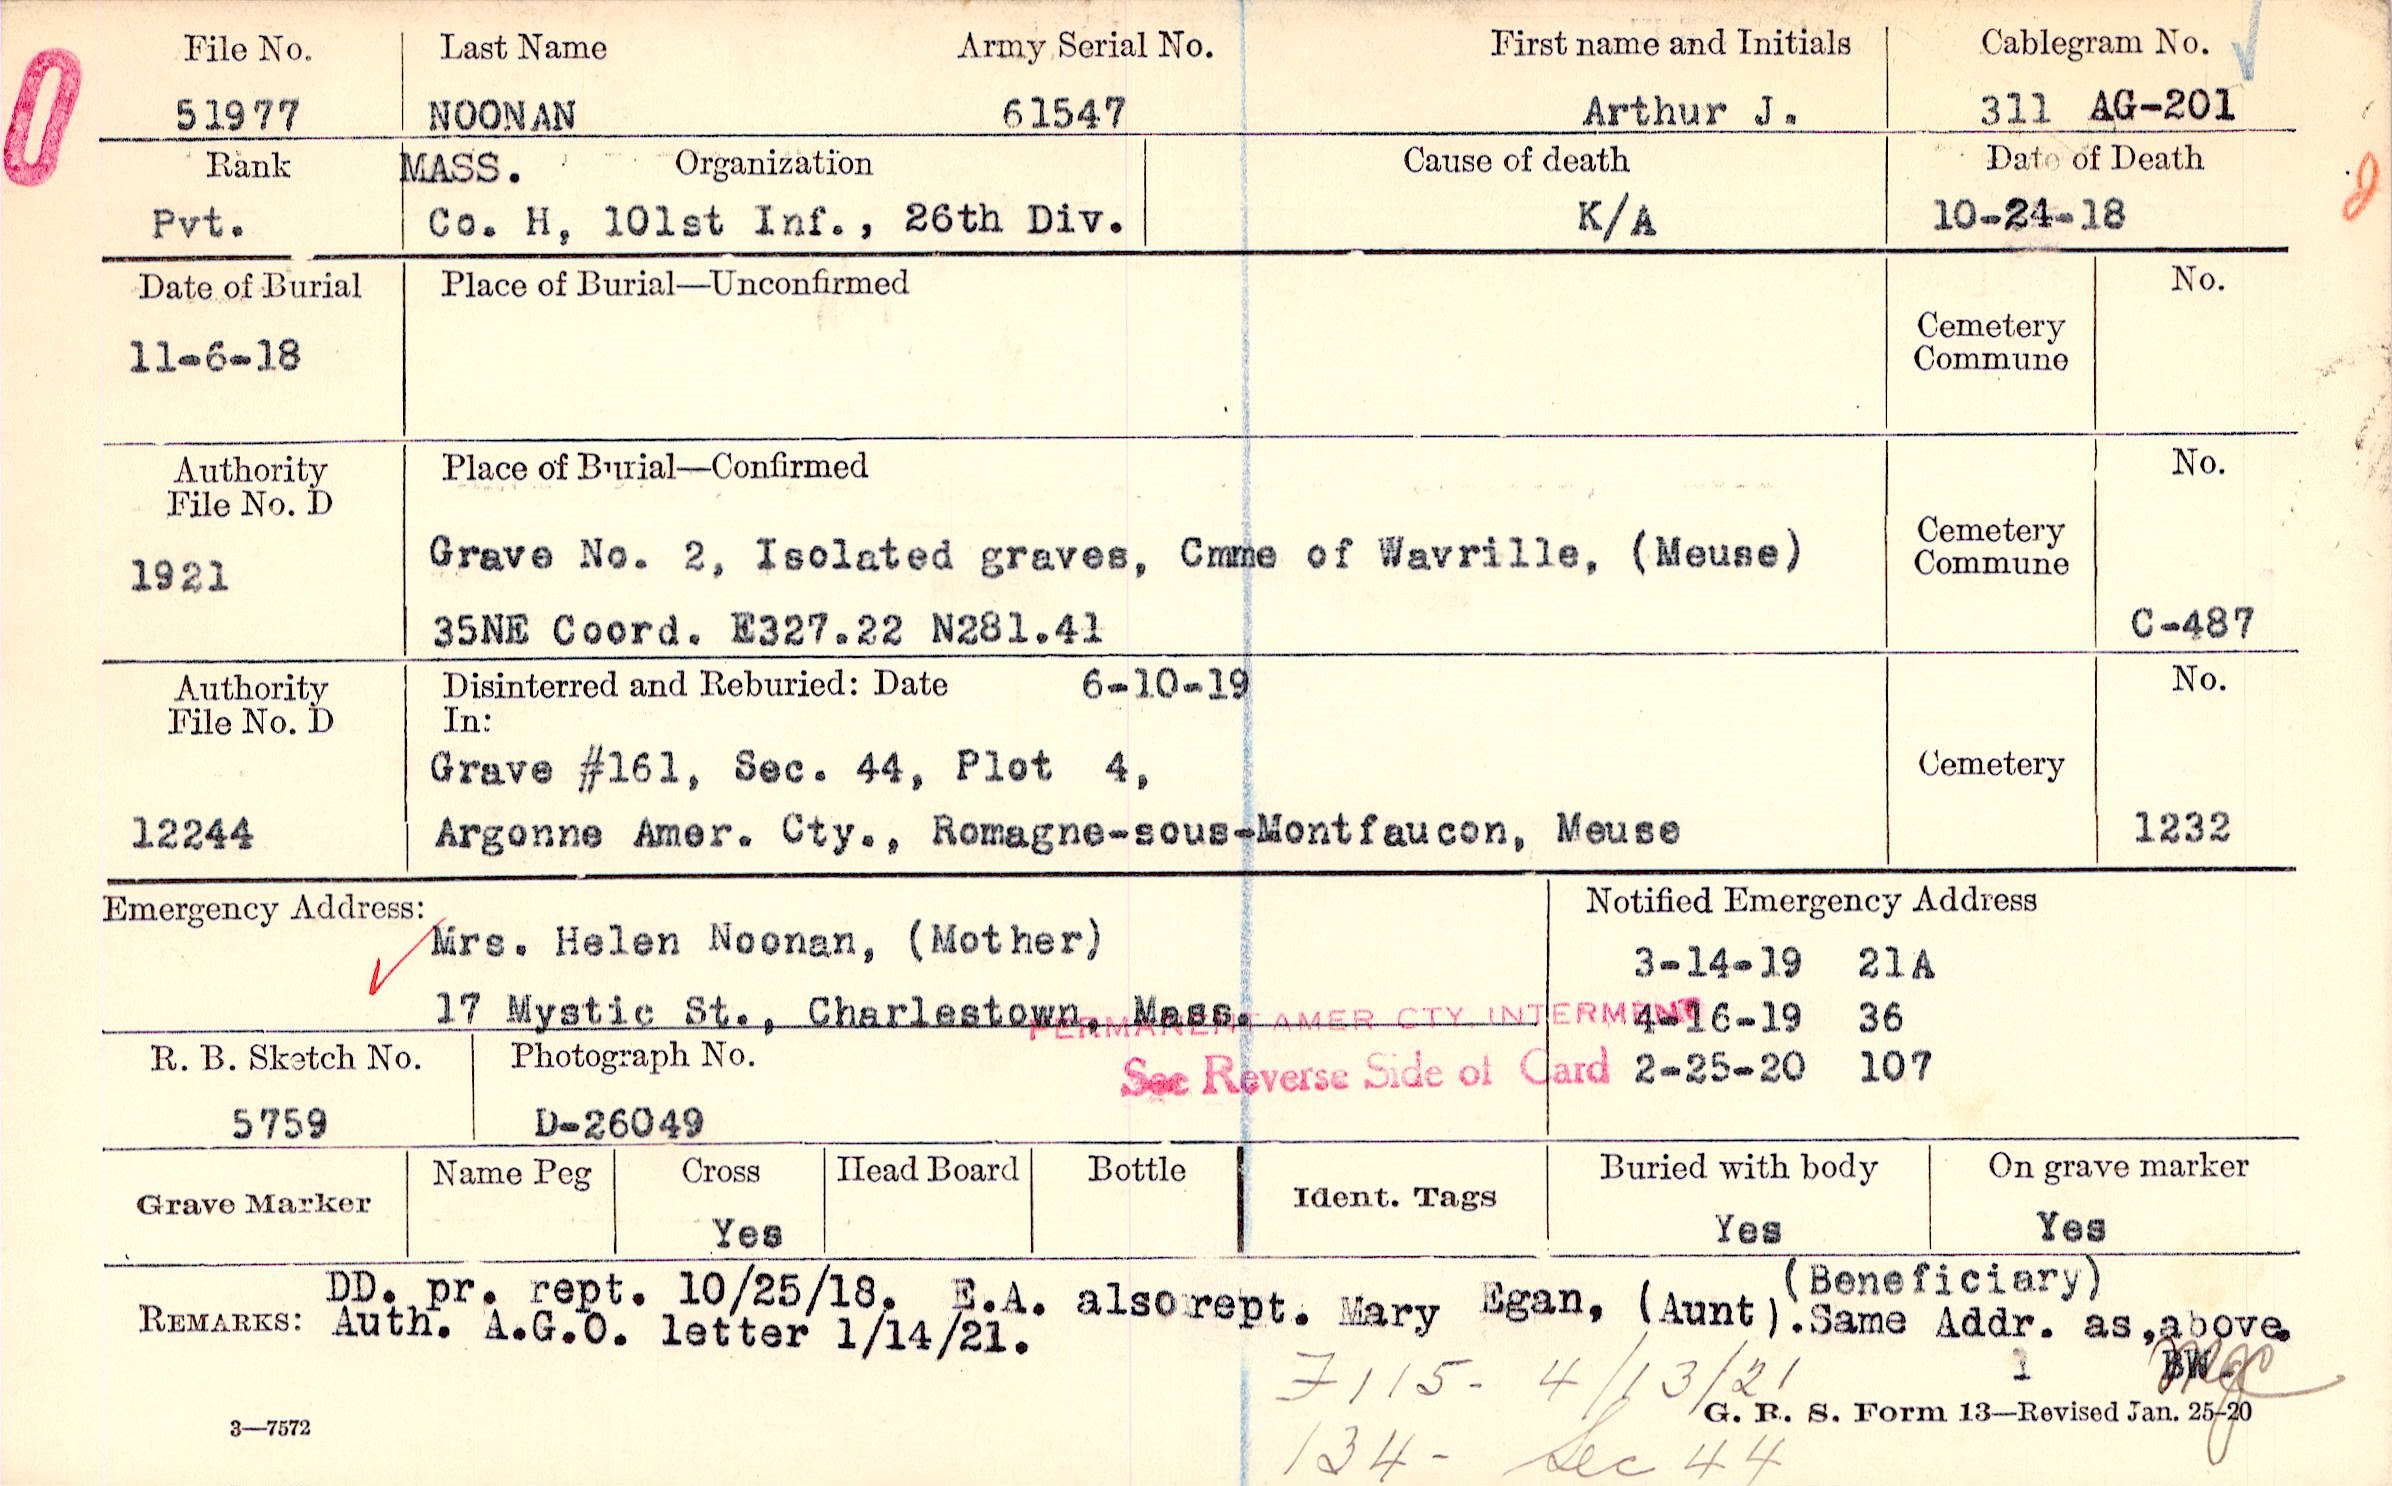 File No. Last Name Army Serial No. First name and Initials Cablegram No.
51977 NOONAN 61547 Arthur J. 311 AG-201
Rank MASS. Organization Cause of death Date of Death
Pvt. Co. H, 101st Inf., 26th Div. K/A 10-24-18
Date of Burial Place of Burial—Unconfirmed No.
11-6-18
Cemetery
Commune
Authority Place of Burial—Confirmed No.
File No. D
Cemetery
Commune
1921 Grave No. 2, Isolated graves, Cmme of Wavrille, (Meuse)
35NE Coord. E327.22 N281.41 C-487
Authority Disinterred and Reburied: Date 6-10-19 No.
File No. D In:
Grave #161, Sec. 44, Plot 4, Cemetery
12244 Argonne Amer. Cty., Romagne-sous-Montfaucon, Meuse 1232
Emergency Address: Notified Emergency Address
Mrs. Helen Noonan, (Mother) 3-14-19 21A
17 Mystic St., Charlestown, Mass. 4-16-19 36
PERMANENT AMER CTY INTERMENT
See Reverse Side of Card 2-25-20 107
R. B. Sketch No. Photograph No.
5759 D-26049
Grave Marker Name Peg Cross Head Board Bottle Ident. Tags Buried with body On grave marker
Yes Yes Yes
(Beneficiary)
REMARKS: DD. pr. rept. 10/25/18. E.A. also rept. Mary Egan, (Aunt).Same Addr. as,above.
Auth. A.G.O. letter 1/14/21.
1 BW.
7115- 4/13/21
G. R. S. Form 13—Revised Jan. 25-20
3—7572
134- Sec 44